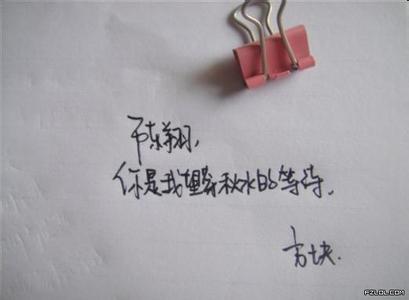 陈翔,
你是我望穿秋水的等待.
方块.
PZLOL.COM